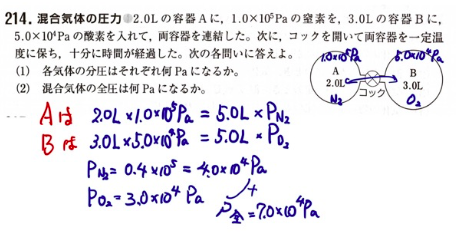 214. 混合気体の圧力 2.0Lの容器Aに，1.0×10⁵Paの窒素を，3.0Lの容器Bに，
5.0×10⁴Paの酸素を入れて，両容器を連結した。次に，コックを開いて両容器を一定温
度に保ち，十分に時間が経過した。次の各問いに答えよ。
(1) 各気体の分圧はそれぞれ何Paになるか。
(2) 混合気体の全圧は何Paになるか。
1.0×10⁵Pa
5.0×10⁴Pa
A
2.0L
N₂
コック
B
3.0L
O₂
Aは 2.0L×1.0×10⁵Pa = 5.0L×P_N₂
Bは 3.0L×5.0×10⁴Pa = 5.0L×P_O₂
P_N₂ = 0.4×10⁵ = 4.0×10⁴Pa
P_O₂ = 3.0×10⁴Pa
+
P全 = 7.0×10⁴Pa